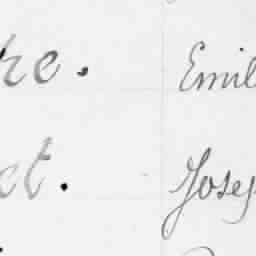 re. Emil
ct. Josep